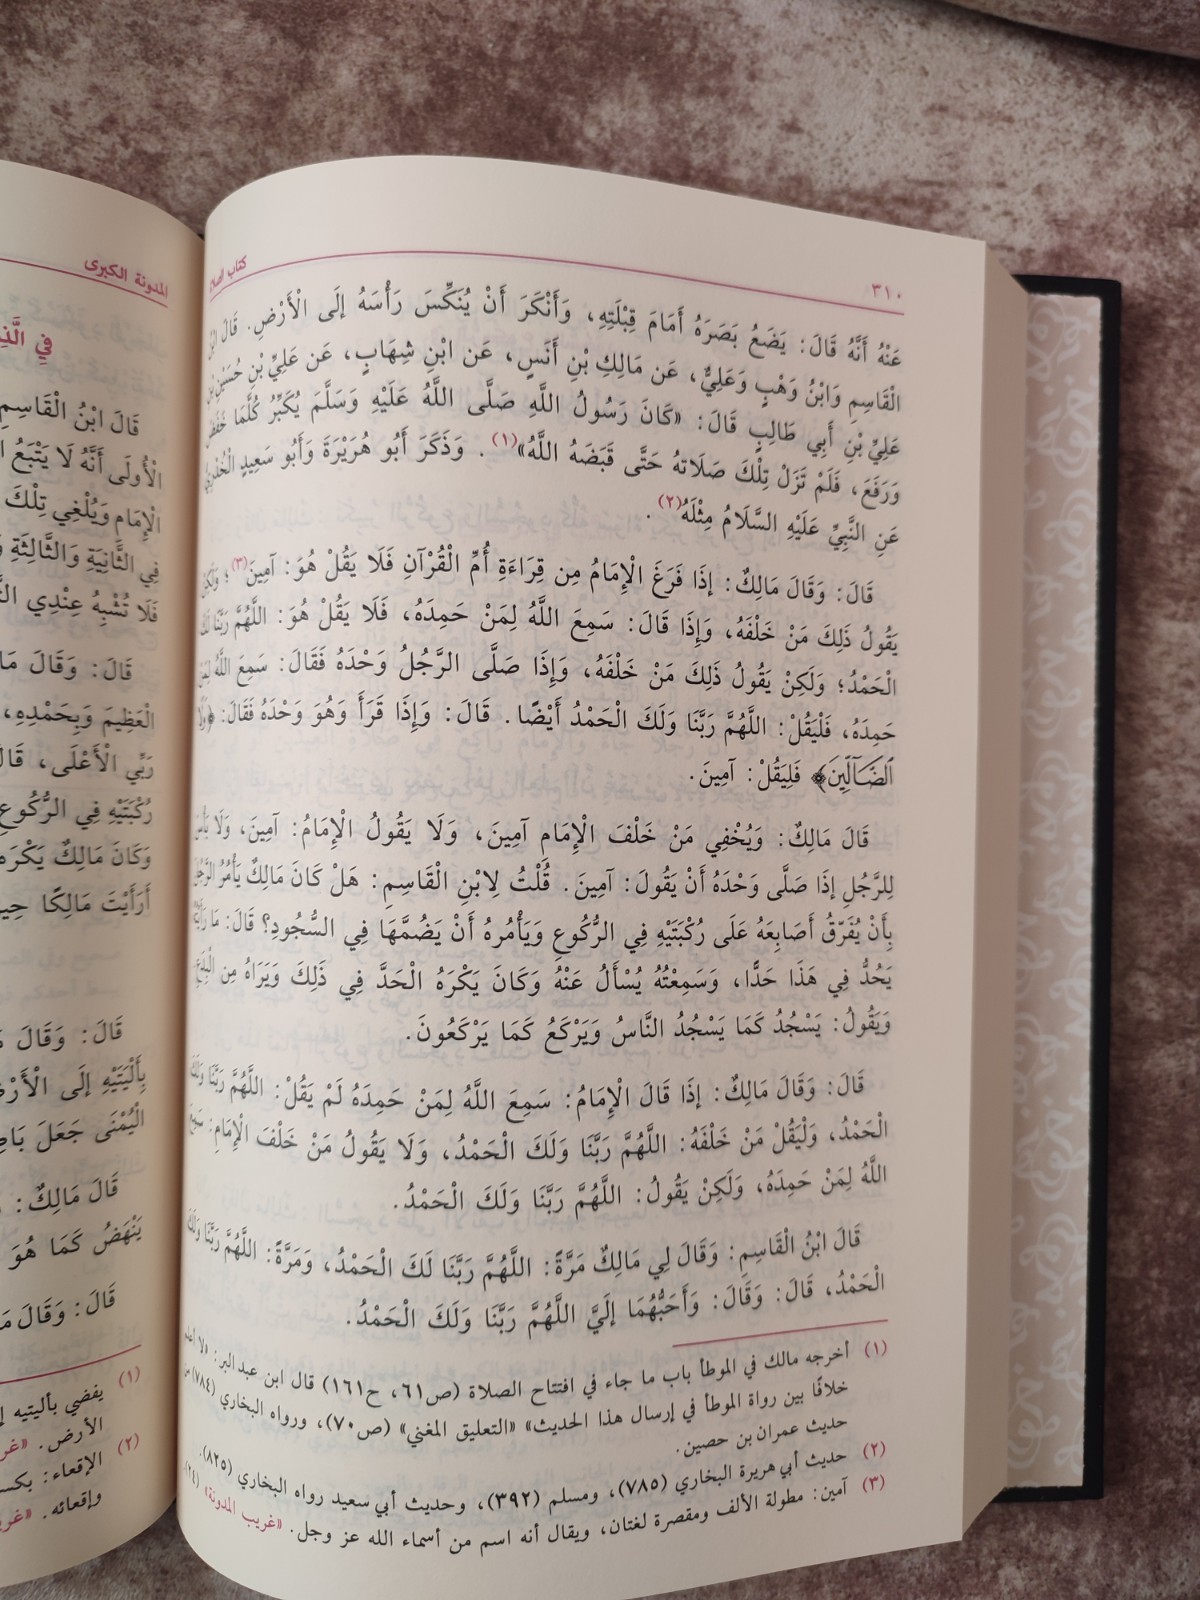 ٣١٠
كتاب الصلاة
عَنْهُ أَنَّهُ قَالَ: يَضَعُ بَصَرَهُ أَمَامَ قِبْلَتِهِ، وَأَنْكَرَ أَنْ يُنَكِّسَ رَأْسَهُ إلَى الْأَرْضِ. قَالَ ابْنُ
الْقَاسِمِ وَابْنُ وَهْبٍ وَعَلِيٌّ، عَن مَالِكِ بْنِ أَنَسٍ، عَن ابْنِ شِهَابٍ، عَن عَلِيِّ بْنِ حُسَيْنِ بْنِ
عَلِيِّ بْنِ أَبِي طَالِبٍ قَالَ: «كَانَ رَسُولُ اللَّهِ صَلَّى اللَّهُ عَلَيْهِ وَسَلَّمَ يُكَبِّرُ كُلَّمَا خَفَضَ
وَرَفَعَ، فَلَمْ تَزَلْ تِلْكَ صَلَاتهُ حَتَّى قَبَضَهُ اللَّهُ»(١). وَذَكَرَ أَبُو هُرَيْرَةَ وَأَبُو سَعِيدٍ الْخُدْرِيُّ
عَنِ النَّبِيِّ عَلَيْهِ السَّلَامُ مِثْلَهُ(٢).
قَالَ: وَقَالَ مَالِكٌ: إذَا فَرَغَ الْإِمَامُ مِن قِرَاءَةِ أُمِّ الْقُرْآنِ فَلَا يَقُلْ هُوَ: آمِينَ(٣)؛ وَلَكِنْ
يَقُولُ ذَلِكَ مَنْ خَلْفَهُ، وَإِذَا قَالَ: سَمِعَ اللَّهُ لِمَنْ حَمِدَهُ، فَلَا يَقُلْ هُوَ: اللَّهُمَّ رَبَّنَا لَكَ
الْحَمْدُ؛ وَلَكِنْ يَقُولُ ذَلِكَ مَنْ خَلْفَهُ، وَإِذَا صَلَّى الرَّجُلُ وَحْدَهُ فَقَالَ: سَمِعَ اللَّهُ لِمَنْ
حَمِدَهُ، فَلْيَقُلْ: اللَّهُمَّ رَبَّنَا وَلَكَ الْحَمْدُ أَيْضًا. قَالَ: وَإِذَا قَرَأَ وَهُوَ وَحْدَهُ فَقَالَ: ﴿وَلَا
ٱلضَّآلِّينَ﴾ فَلِيَقُلْ: آمِينَ.
قَالَ مَالِكٌ: وَيُخْفِي مَنْ خَلْفَ الْإِمَامِ آمِينَ، وَلَا يَقُولُ الْإِمَامُ: آمِينَ، وَلَا بَأْسَ
لِلرَّجُلِ إذَا صَلَّى وَحْدَهُ أَنْ يَقُولَ: آمِينَ. قُلْتُ لِابْنِ الْقَاسِمِ: هَلْ كَانَ مَالِكٌ يَأْمُرُ الرَّجُلَ
بِأَنْ يُفَرِّقُ أَصَابِعَهُ عَلَى رُكْبَتَيْهِ فِي الرُّكُوعِ وَيَأْمُرهُ أَنْ يَضُمَّهَا فِي السُّجُودِ؟ قَالَ: مَا رَأَيْتُهُ
يَحُدُّ فِي هَذَا حَدًّا، وَسَمِعْتُهُ يُسْأَلُ عَنْهُ وَكَانَ يَكْرَهُ الْحَدَّ فِي ذَلِكَ وَيَرَاهُ مِن الْبِدَعِ
وَيَقُولُ: يَسْجُدُ كَمَا يَسْجُدُ النَّاسُ وَيَرْكَعُ كَمَا يَرْكَعُونَ.
قَالَ: وَقَالَ مَالِكٌ: إذَا قَالَ الْإِمَامُ: سَمِعَ اللَّهُ لِمَنْ حَمِدَهُ لَمْ يَقُلْ: اللَّهُمَّ رَبَّنَا وَلَكَ
الْحَمْدُ، وَلْيَقُلْ مَنْ خَلْفَهُ: اللَّهُمَّ رَبَّنَا وَلَكَ الْحَمْدُ، وَلَا يَقُولُ مَنْ خَلْفَ الْإِمَامِ: سَمِعَ
اللَّهُ لِمَنْ حَمِدَهُ، وَلَكِنْ يَقُولُ: اللَّهُمَّ رَبَّنَا وَلَكَ الْحَمْدُ.
قَالَ ابْنُ الْقَاسِمِ: وَقَالَ لِي مَالِكٌ مَرَّةً: اللَّهُمَّ رَبَّنَا لَكَ الْحَمْدُ، وَمَرَّةً: اللَّهُمَّ رَبَّنَا وَلَكَ
الْحَمْدُ، قَالَ: وَقَالَ: وَأَحَبُّهُمَا إلَيَّ اللَّهُمَّ رَبَّنَا وَلَكَ الْحَمْدُ.
(١) أخرجه مالك في الموطأ باب ما جاء في افتتاح الصلاة (ص٦١، ح١٦١) قال ابن عبد البر: «لا أعلم
خلافًا بين رواة الموطأ في إرسال هذا الحديث» «التعليق المغني» (ص٧٠)، ورواه البخاري (٧٨٤) من
حديث عمران بن حصين.
(٢) حديث أبي هريرة البخاري (٧٨٥)، ومسلم (٣٩٢)، وحديث أبي سعيد رواه البخاري (٨٢٥).
(٣) آمين: مطولة الألف ومقصرة لغتان، ويقال أنه اسم من أسماء الله عز وجل. «غريب المدونة»
المدونة الكبرى
فِي
قَالَ ابْنُ الْقَاسِمِ
الْأُولَى أَنَّهُ لَا يَتْبَعُ
الْإِمَامِ وَيُلْغِي تِلْكَ
فِي الثَّانِيَةِ وَالثَّالِثَةِ
فَلَا تُشْبِهُ عِنْدِي
قَالَ: وَقَالَ
الْعَظِيمَ وَبِحَمْدِهِ،
رَبِّي الْأَعْلَى، قَالَ
رُكْبَتَيْهِ فِي الرُّكُوعِ
وَكَانَ مَالِكٌ يَكْرَهُ
أَرَأَيْتَ مَالِكًا
قَالَ: وَقَالَ
بِأَلْيَتَيْهِ إلَى
الْيُمْنَى جَعَلَ
قَالَ مَالِكٌ:
يَنْهَضُ كَمَا هُوَ
قَالَ: وَقَالَ
(١) يفضي بأليتيه
الأرض.
(٢) الإقعاء:
وإقعائه.